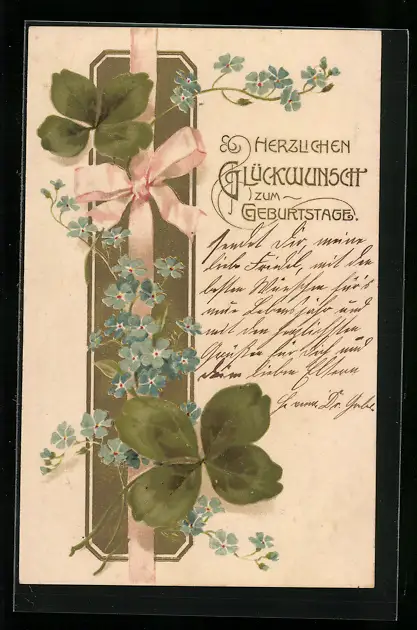 HERZLICHEN
GLÜCKWUNSCH
ZUM
GEBURTSTAGE.
sendet Dir, meine
liebe Friedel, mit den
besten Wünschen für's
neue Lebensjahr und
mit den herzlichsten
Grüßen für Dich und
Deine lieben Eltern
Dr.